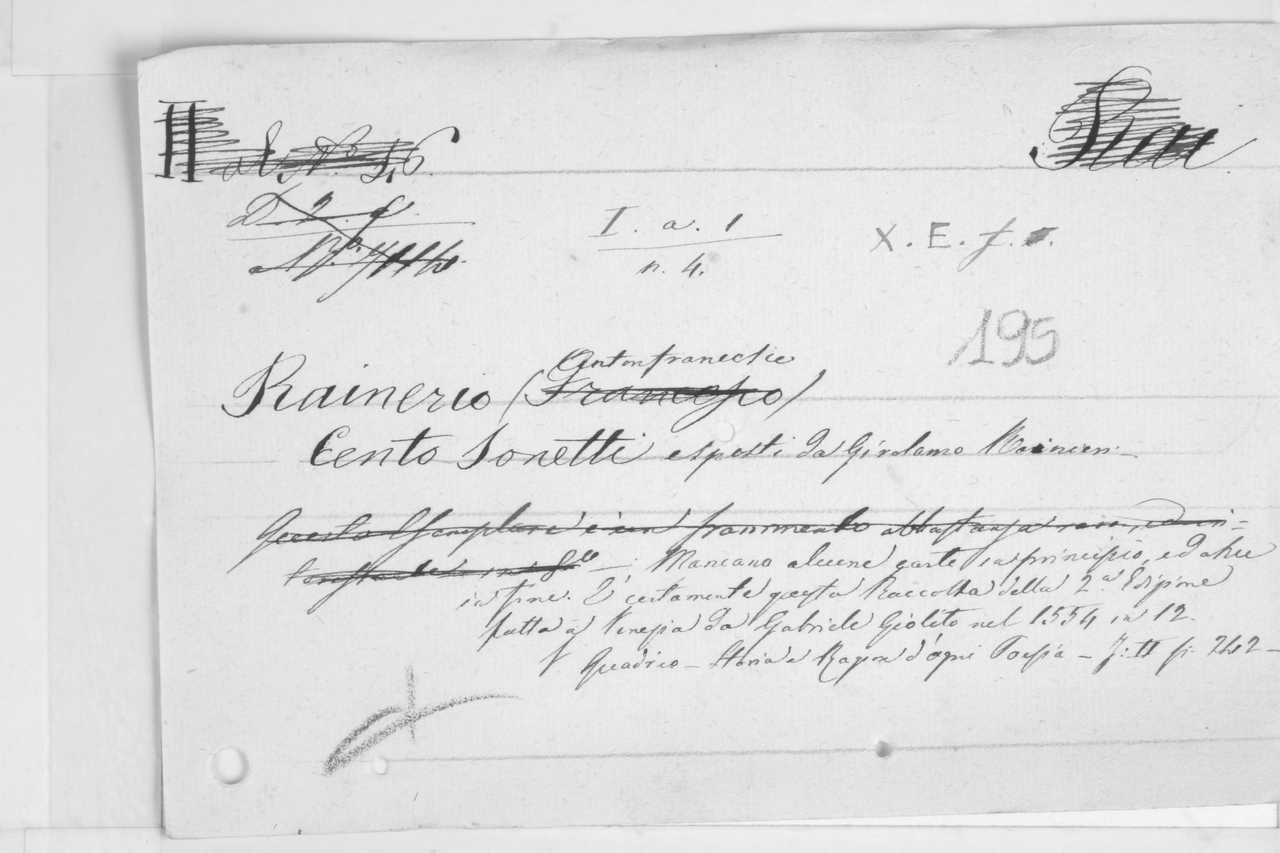 Rai
D. 2. f.
I. a. 1
n. 4.
X. E. f.
195
Antonfrancesco
Rainerio (Francesco)
Cento Sonetti esposti da Girolamo
Questo Esemplare è un frammento abbastanza raro, ed in-
in 8º — Mancano alcune carte in principio, ed altre
in fine. È certamente questa Raccolta della 2.a Edizione
fatta a Venezia da Gabriele Giolito nel 1554 in 12.
V Quadrio - Storia e Ragion d'ogni Poesia - T: II p: 242 -